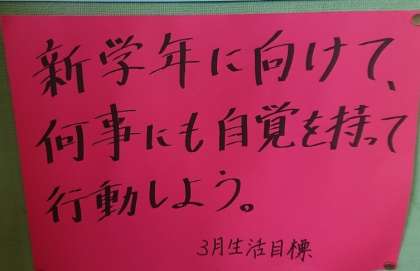 新学年に向けて、
何事にも自覚を持って
行動しよう。
3月生活目標